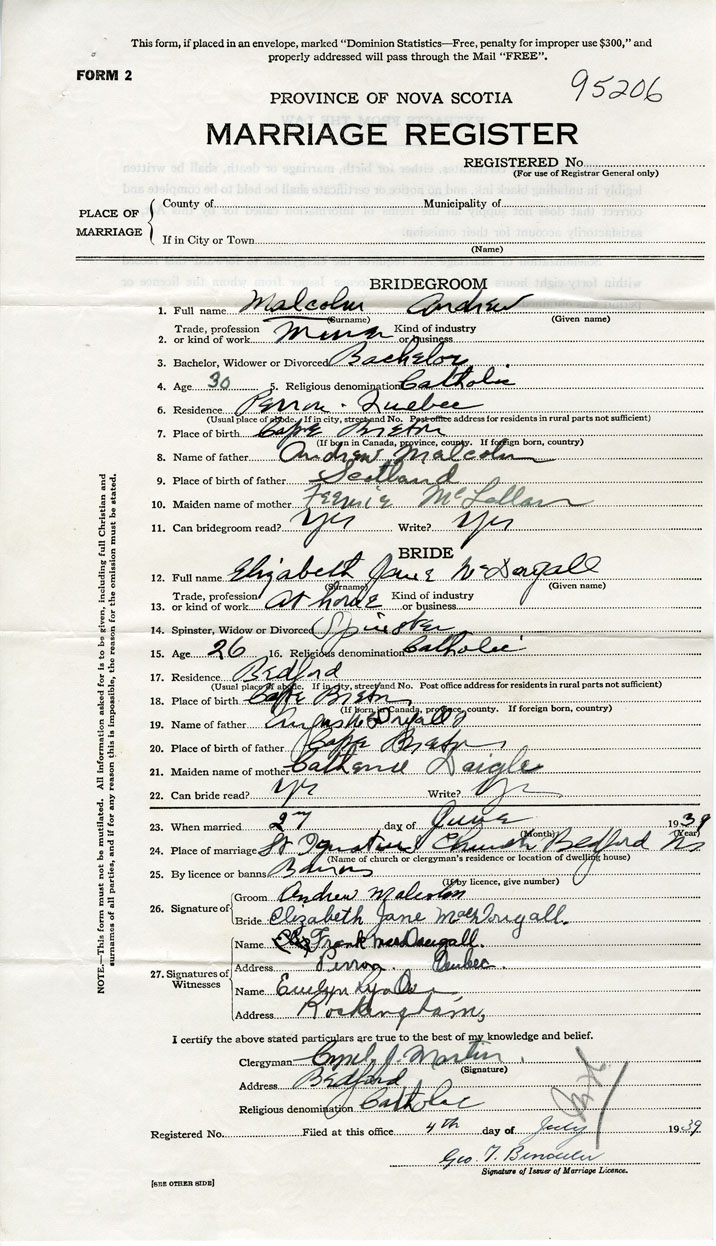 This form, if placed in an envelope, marked "Dominion Statistics—Free, penalty for improper use $300," and
properly addressed will pass through the Mail "FREE".
FORM 2
95206
PROVINCE OF NOVA SCOTIA
MARRIAGE REGISTER
REGISTERED No.
(For use of Registrar General only)
PLACE OF MARRIAGE
County of Municipality of
If in City or Town
(Name)
BRIDEGROOM
1. Full name Malcolm Andrew
(Surname) (Given name)
2. Trade, profession or kind of work Miner Kind of industry or business
3. Bachelor, Widower or Divorced Bachelor
4. Age 30 5. Religious denomination Catholic
6. Residence Perron - Quebec
(Usual place of abode. If in city, street and No. Post office address for residents in rural parts not sufficient)
7. Place of birth Cape Breton
(If born in Canada, province, county. If foreign born, country)
8. Name of father Andrew Malcolm
9. Place of birth of father Scotland
10. Maiden name of mother McLellan
11. Can bridegroom read? Yes Write? Yes
BRIDE
12. Full name Elizabeth Jane McDougall
(Surname) (Given name)
13. Trade, profession or kind of work At home Kind of industry or business
14. Spinster, Widow or Divorced Spinster
15. Age 26 16. Religious denomination Catholic
17. Residence Bedford
(Usual place of abode. If in city, street and No. Post office address for residents in rural parts not sufficient)
18. Place of birth Cape Breton
(If born in Canada, province, county. If foreign born, country)
19. Name of father
20. Place of birth of father Cape Breton
21. Maiden name of mother Catherine Daigle
22. Can bride read? Yes Write? Yes
23. When married 27 day of June 1939
(Month) (Year)
24. Place of marriage St Ignatius Church Bedford NS
(Name of church or clergyman's residence or location of dwelling house)
25. By licence or banns Banns
(If by licence, give number)
26. Signature of
Groom Andrew Malcolm
Bride Elizabeth Jane MacDougall.
27. Signatures of Witnesses
Name Frank MacDougall.
Address Perron. Quebec.
Name Evelyn
Address Rockingham,
I certify the above stated particulars are true to the best of my knowledge and belief.
Clergyman Cyril J. Martin
(Signature)
Address Bedford
Religious denomination Catholic
Registered No. Filed at this office 4th day of July 1939
Geo. T.
Signature of Issuer of Marriage Licence.
[SEE OTHER SIDE]
NOTE.—This form must not be mutilated. All information asked for is to be given, including full Christian and
surnames of all parties, and if for any reason this is impossible, the reason for the omission must be stated.